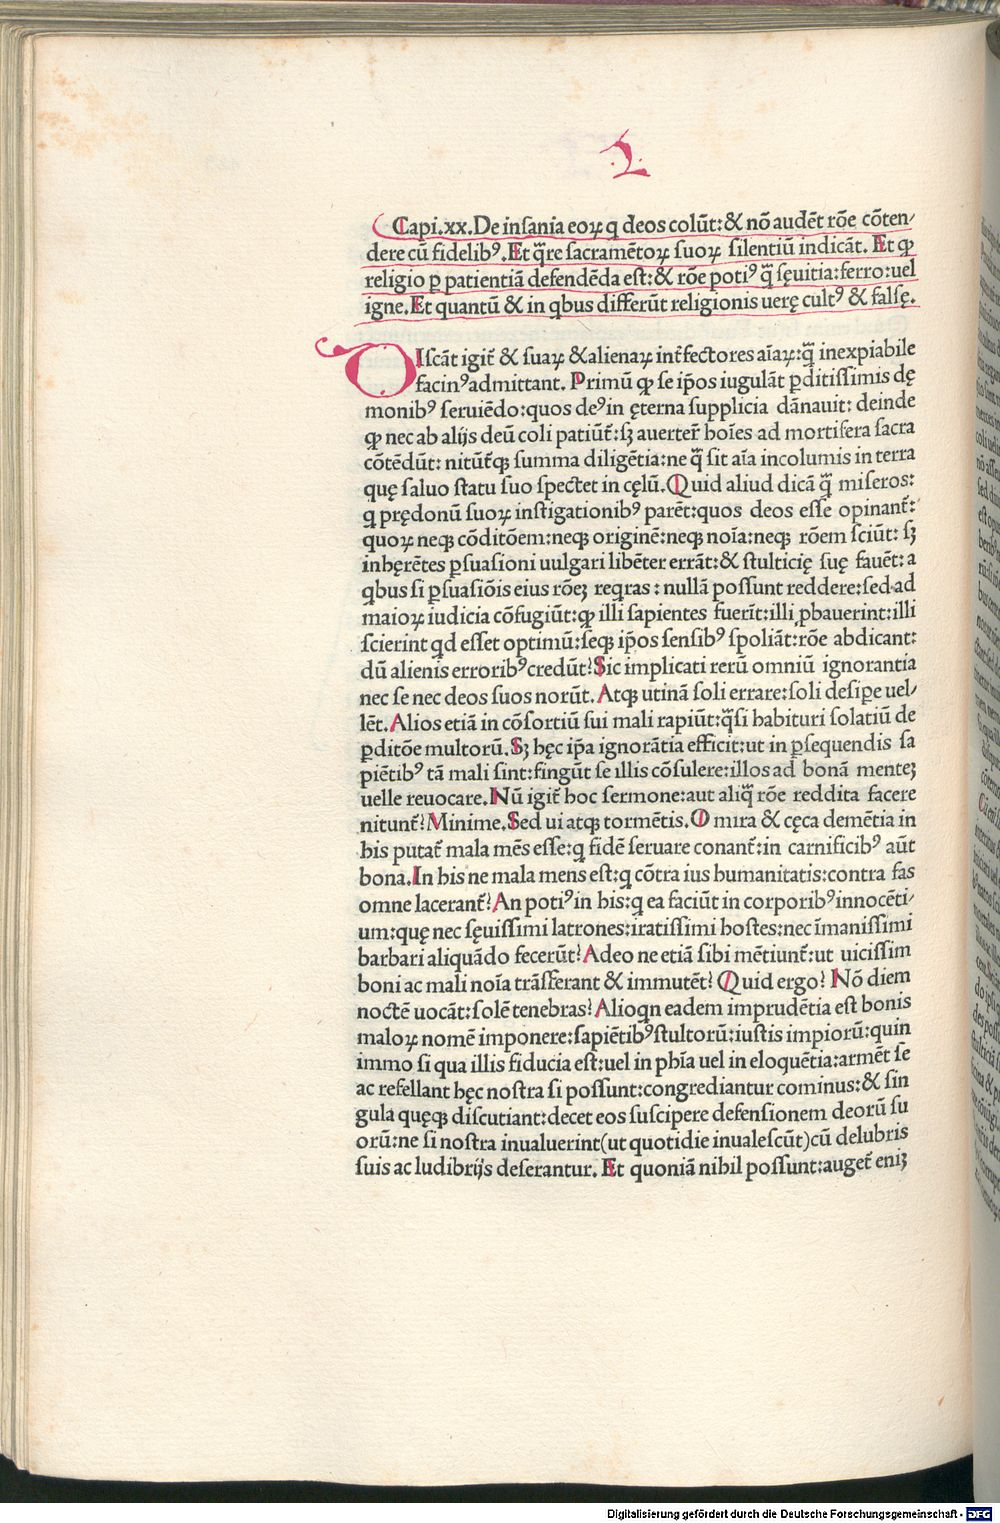 2
Capi.xx.De insania eoꝝ q deos colūt:& nō audēt rōe cōten/
dere cū fidelibꝰ.Et q̄re sacramētoꝝ suoꝝ silentiū indicāt. Et ꝙ
religio ꝑ patientiā defendēda est:& rōe potiꝰ q̄ sęuitia:ferro:uel
igne.Et quantū & in qbus differūt religionis uerę cultꝰ & falsę.
DIscāt igit̄ & suaꝝ &alienaꝝ int̄fectores aīaꝝ:q̄ inexpiabile
facinꝰadmittant. Primū ꝙ se ip̄os iugulāt ꝑditissimis dę
monibꝰ seruiēdo:quos deꝰin ęterna supplicia dānauit: deinde
ꝙ nec ab alijs deū coli patiūt̄:sꝫ auerter̄ hoīes ad mortifera sacra
cōtēdūt: nitūt̄qꝫ summa diligētia:ne q̄ sit aīa incolumis in terra
quę saluo statu suo spectet in cęlū.Quid aliud dicā q̄ miseros:
q prędonū suoꝝ instigationibꝰ parēt:quos deos esse opinant̄:
quoꝝ neqꝫ cōditōem:neqꝫ originē:neqꝫ noīa:neqꝫ rōem sciūt: sꝫ
inhęrētes ꝑsuasioni uulgari libēter errāt:& stulticię suę fauēt: a
qbus si ꝑsuasiōis eius rōeꝫ reqras : nullā possunt reddere:sed ad
maioꝝ iudicia cōfugiūt:ꝙ illi sapientes fuerīt:illi ꝓbauerint:illi
scierint qd esset optimū:seqꝫ ip̄os sensibꝰ spoliāt:rōe abdicant:
dū alienis erroribꝰcredūt?Sic implicati rerū omniū ignorantia
nec se nec deos suos norūt. Atqꝫ utinā soli errare:soli desipe uel/
lēt.Alios etiā in cōsortiū sui mali rapiūt:q̄si habituri solatiū de
ꝑditōe multorū.Sꝫ hęc ip̄a ignorātia efficit:ut in ꝑsequendis sa
piētibꝰ tā mali sint:fingūt se illis cōsulere:illos ad bonā menteꝫ
uelle reuocare.Nū igit̄ hoc sermone:aut aliq̄ rōe reddita facere
nitunt̄?Minime.Sed ui atqꝫ tormētis.O mira & cęca demētia in
his putat̄ mala mēs esse:q fidē seruare conant̄:in carnificibꝰ aūt
bona.In his ne mala mens est:q cōtra ius humanitatis:contra fas
omne lacerant̄?An potiꝰin his:q ea faciūt in corporibꝰinnocēti/
um:quę nec sęuissimi latrones:iratissimi hostes:nec īmanissimi
barbari aliquādo fecerūt?Adeo ne etiā sibi mētiunt̄:ut uicissim
boni ac mali noīa trāsferant & immutēt? Quid ergo? Nō diem
noctē uocāt:solē tenebras?Alioqn eadem imprudētia est bonis
maloꝝ nomē imponere:sapiētibꝰstultorū:iustis impiorū:quin
immo si qua illis fiducia est:uel in ph̄ia uel in eloquētia:armēt se
ac refellant hęc nostra si possunt:congrediantur cominus:& sin
gula quęqꝫ discutiant:decet eos suscipere defensionem deorū su
orū:ne si nostra inualuerint(ut quotidie inualescūt)cū delubris
suis ac ludibrijs deserantur. Et quoniā nihil possunt:auget̄ eniꝫ
Digitalisierung gefördert durch die Deutsche Forschungsgemeinschaft - DFG